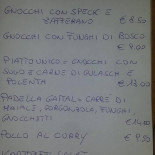 GNOCCHI CON SPECK E
RAFFERANO € 8.50
GNOCCHI CON FUNGHI DI BOSCO
€ 9.00
PIATTO UNICO= GNOCCHI CON
SUGO E CARNE DI GULASCH E
POLENTA € 13.00
PADELLA GAITAL= CARNE DI
MAIALE, PORCO, FUNGHI,
GNOCCHETTI € 14.00
POLLO AL CURRY € 9.50